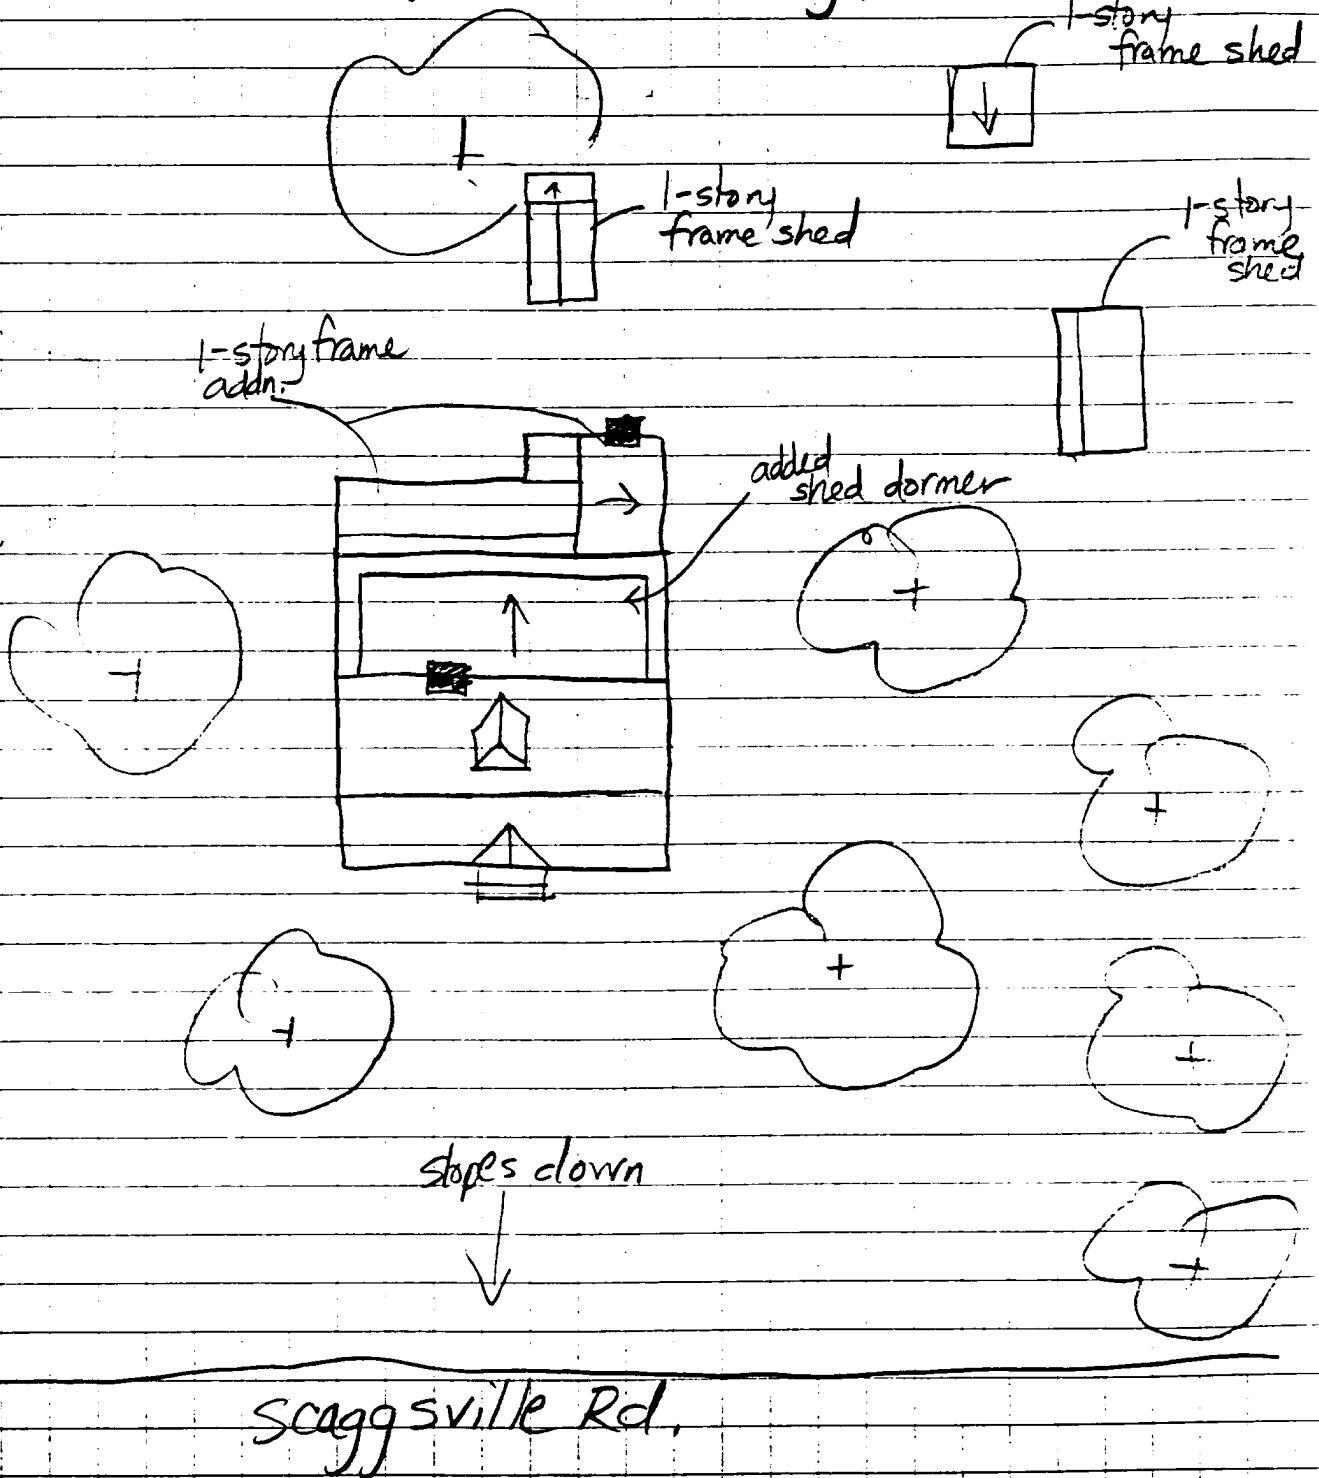 1-story
frame shed
1-story
frame shed
1-story
frame
shed
1-story frame
addn.
added
shed dormer
slopes down
Scaggsville Rd.